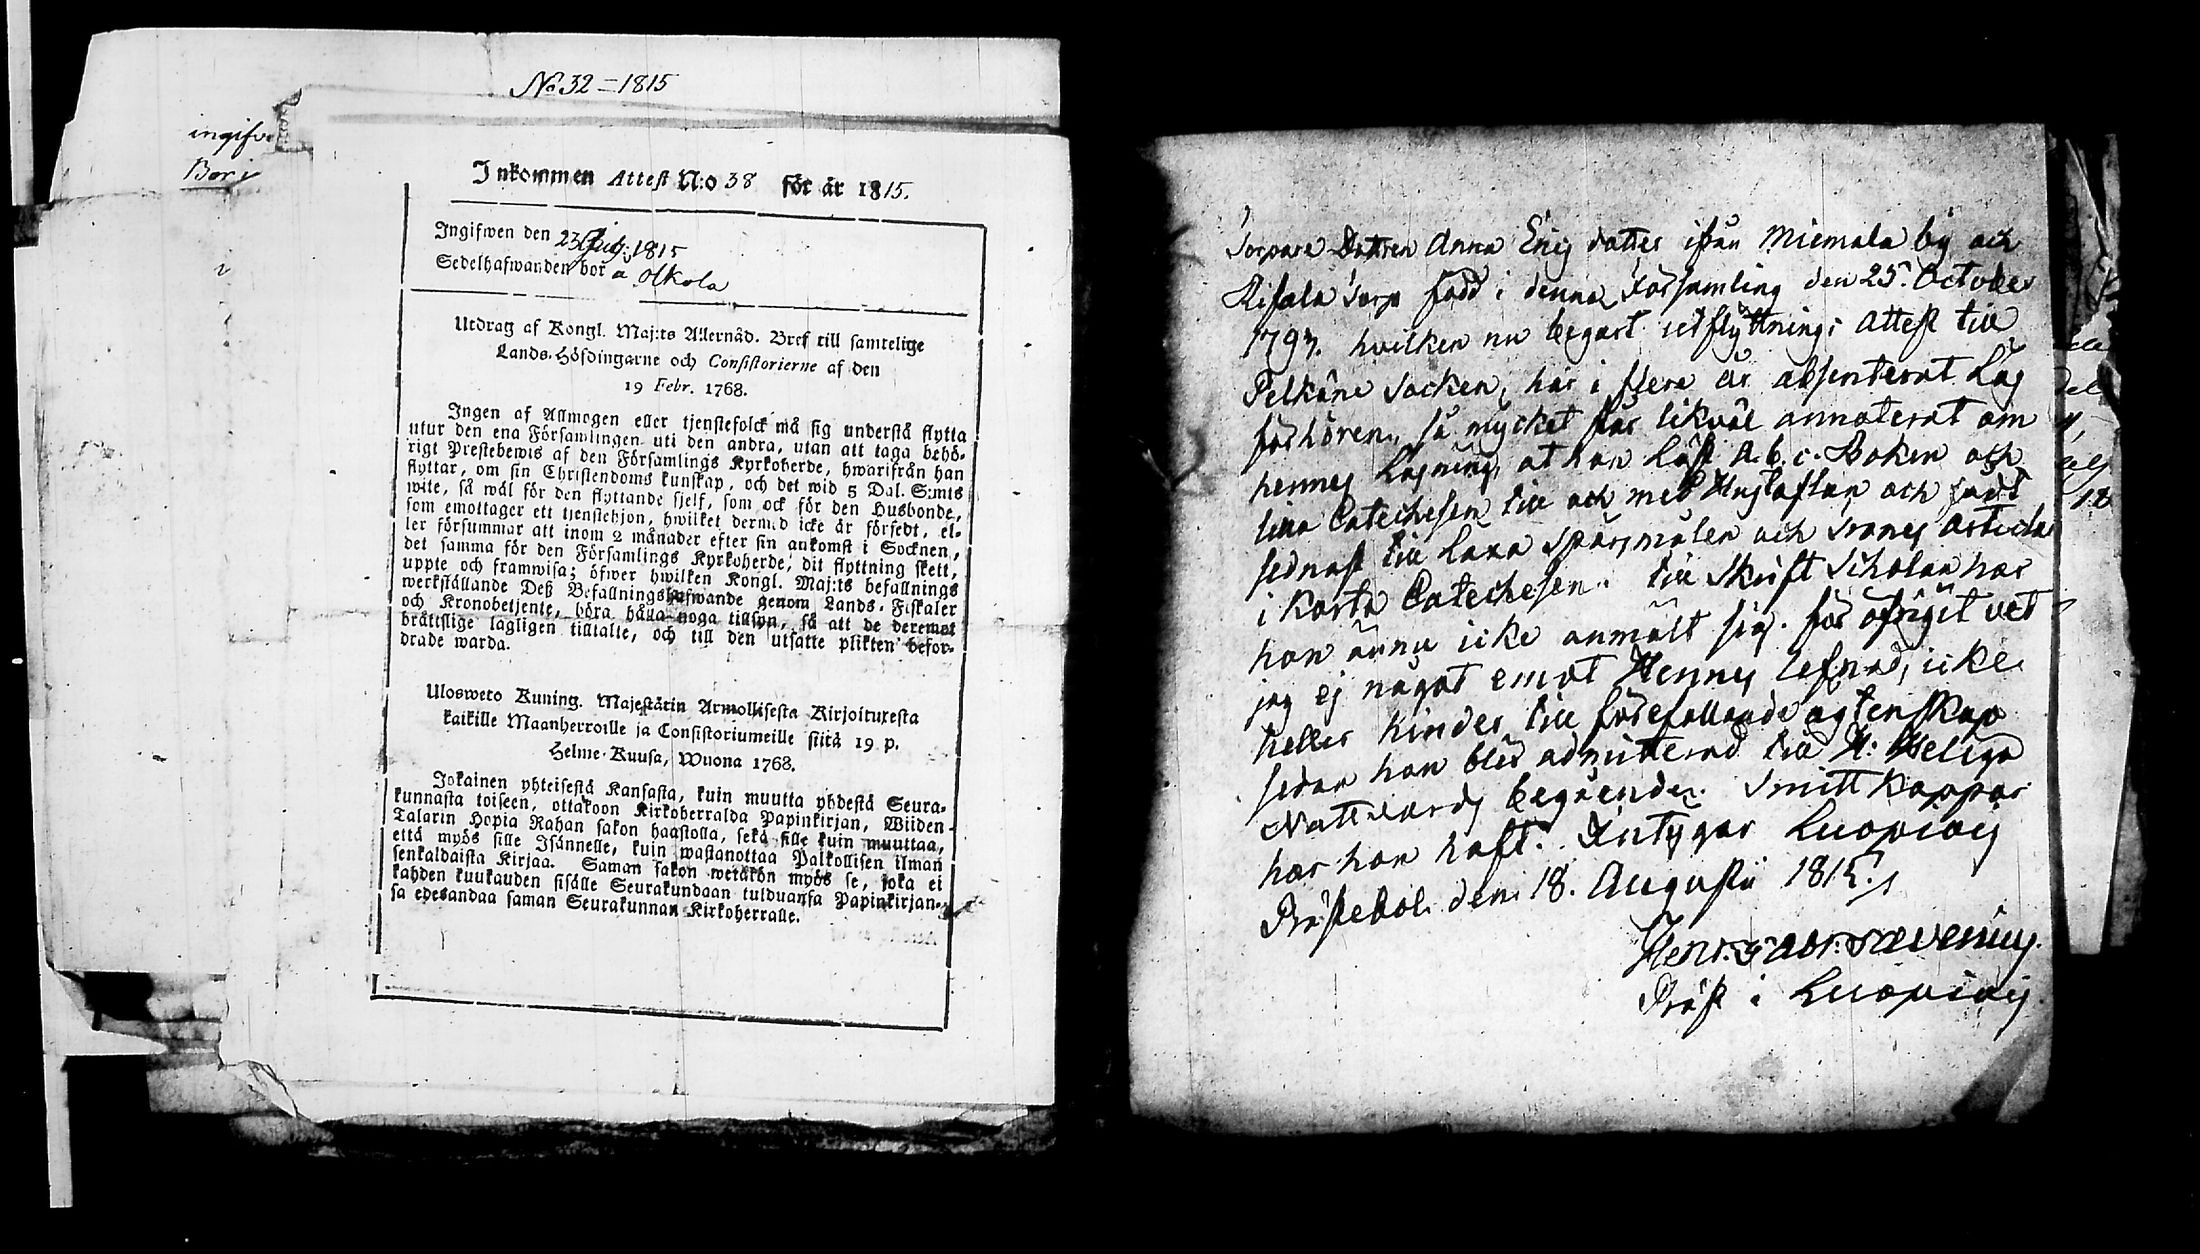 No 32 = 1815
ingifv
Bor i
Inkommen Attest N:o 38 för år 1815.
Ingifwen den 23 July 1815
Sedelhafwanden bor å Olkola
Utdrag af Kongl. Maj:ts Allernåd. Bref till samtelige
Lands-Höfdingarne och Consistorierne af den
19 Febr. 1768.
Ingen af Allmogen eller tjenstefolck må sig understå flytta
utur den ena Församlingen uti den andra, utan att taga behö-
rigt Prestebewis af den Församlings Kyrkoherde, hwarifrån han
flyttar, om sin Christendoms kunskap, och det wid 5 Dal. S:mts
wite, så wäl för den flyttande sjelf, som ock för den Husbonde,
som emottager ett tjenstehjon, hwilket dermed icke är försedt, el-
ler försummar att inom 2 månader efter sin ankomst i Socknen,
det samma för den Församlings Kyrkoherde, dit flyttning skett,
uppte och framwisa; öfwer hwilken Kongl. Maj:ts befallnings
werkställande Deß Befallningshafwande genom Lands-Fiskaler
och Kronobetjente, böra hålla noga tillsyn, så att de deremot
bråttslige lagligen tilltalte, och till den utsatte plikten befor-
drade warda.
Ulosweto Kuning. Majestätin Armollisesta Kirjoituxesta
kaikille Maanherroille ja Consistoriumeille siitä 19 p.
Helme-Kuusa, Wuona 1768.
Jokainen yhteisestä Kansasta, kuin muutta yhdestä Seura-
kunnasta toiseen, ottakoon Kirkoherralda Papinkirjan, Wiiden
Talarin Hopia Rahan sakon haastolla, sekä sille kuin muuttaa,
että myös sille Isännelle, kuin wastanottaa Palkollisen ilman
senkaldaista Kirjaa. Saman sakon wetäkön myös se, joka ei
kahden kuukauden sisälle Seurakundaan tulduansa Papinkirjan-
sa edesandaa saman Seurakunnan Kirkoherralle.
Torpare Dottren Anna Erics dotter ifrån Miemala by och
Risala Torp född i denna Församling den 25. October
1793. hvilken nu begärt utflyttnings Attest till
Pelkäne Socken, har i flere år absenterat Läs
förhören, så mycket fås likväl annoterat om
hennes Läsning, at hon Läst A.b.c. Boken och
lilla Catechesen till och med Hustaflan och
sednast till Laxa Spörsmålen och trones Articlar
i korta Catechesen. till Skrift Scholan har
hon ännu icke anmält sig. för öfrigit vet
jag ej något emot Hennes lefnad, icke
heller hinder till förefallande ägtenskap
sedan hon blir admitterad till H: Heliga
Nattvards begående. Smittkoppor
har hon haft. Intygar Luopiois
Prästebol den 18. Augusti 1815.
Henr. Gabr. Tavenius.
Präst i Luopiois